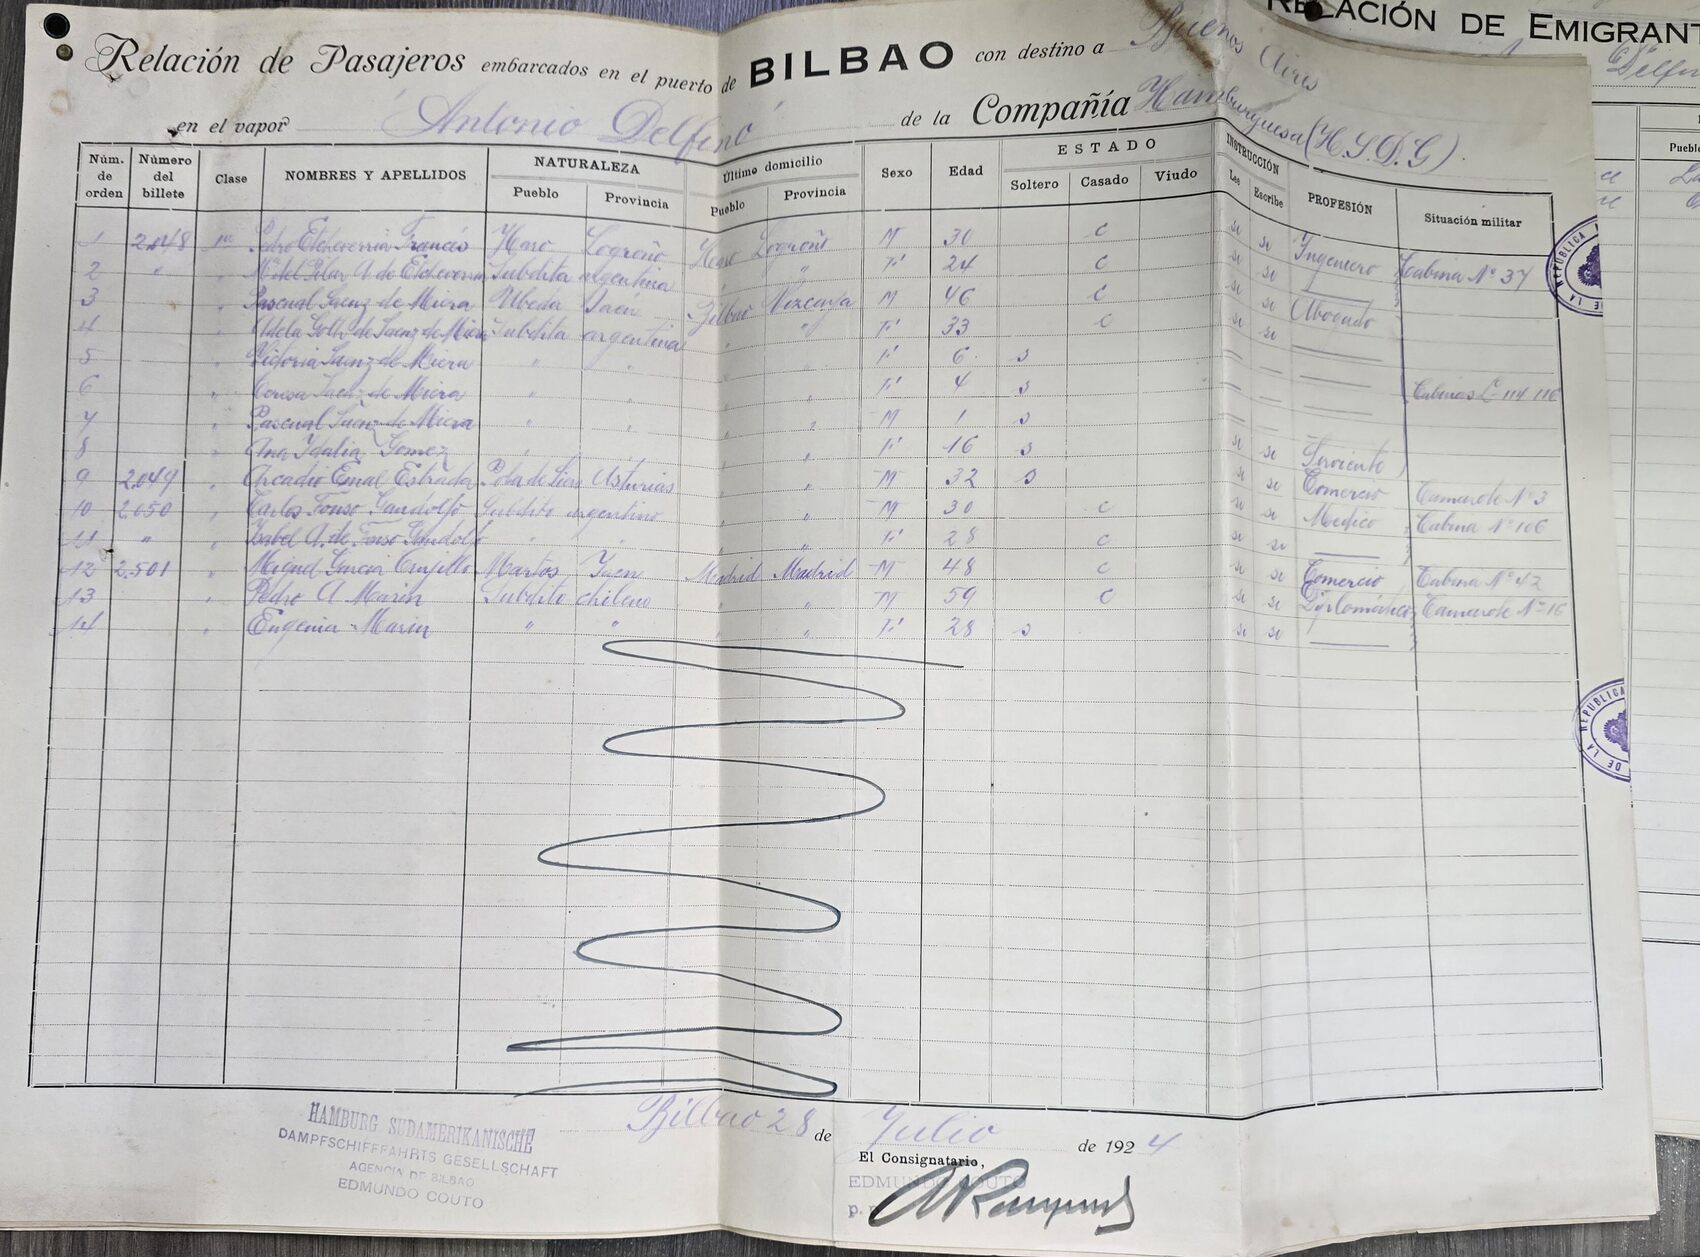 Relación de Pasajeros embarcados en el puerto de BILBAO con destino a Buenos Aires
en el vapor Antonio Delfino de la Compañía Hamburguesa (H.S.D.G)
Núm. de orden Número del billete Clase NOMBRES Y APELLIDOS NATURALEZA Pueblo Provincia Último domicilio Pueblo Provincia Sexo Edad ESTADO Soltero Casado Viudo INSTRUCCIÓN Lee Escribe PROFESIÓN Situación militar
1 2.048 Pedro Etcheverria Francés Haro Logroño Haro Logroño M 30 C si si Ingeniero Cabina Nº 37
2 " " Mª del Pilar A. de Etcheverria Subdita argentina " " F 24 C si si
3 " Pascual Saenz de Miera Ubeda Jaén Bilbao Vizcaya M 46 C si si Abogado
4 " Adela Goth de Saenz de Miera Subdita argentina " " F 33 C si si
5 " Victoria Saenz de Miera " " " " F 6 s
6 " Teresa Saenz de Miera " " " " F 4 s Cabinas 114 116
7 " Pascual Saenz de Miera " " " " M 1 s
8 " Ana Idalia Gomez " " " " F 16 s si si Sirviente
9 2.049 " Arcadio Estrada Pola de Siero Asturias " " M 32 s si si Comercio Camarote Nº 3
10 2.050 " Carlos Fonso Gandolfo Subdito argentino " " M 30 C si si Medico Cabina Nº 106
11 " " Isabel A. de Fonso Gandolfo " " " " F 28 C si si
12 2.501 " Miguel Garcia Trujillo Martos Jaen Madrid Madrid M 48 C si si Comercio Cabina Nº 42
13 " Pedro A Marin Subdito chileno " " M 59 C si si Diplomático Camarote Nº 16
14 " Eugenia Marin " " " " F 28 s si si
Bilbao 28 de Julio de 1924
El Consignatario,
EDMUNDO COUTO
p. p.
HAMBURG SUDAMERIKANISCHE
DAMPFSCHIFFFAHRTS GESELLSCHAFT
AGENCIA DE BILBAO
EDMUNDO COUTO
RELACIÓN DE EMIGRANT
Delfin
Pueblo
DE LA REPUBLICA
DE LA REPUBLICA